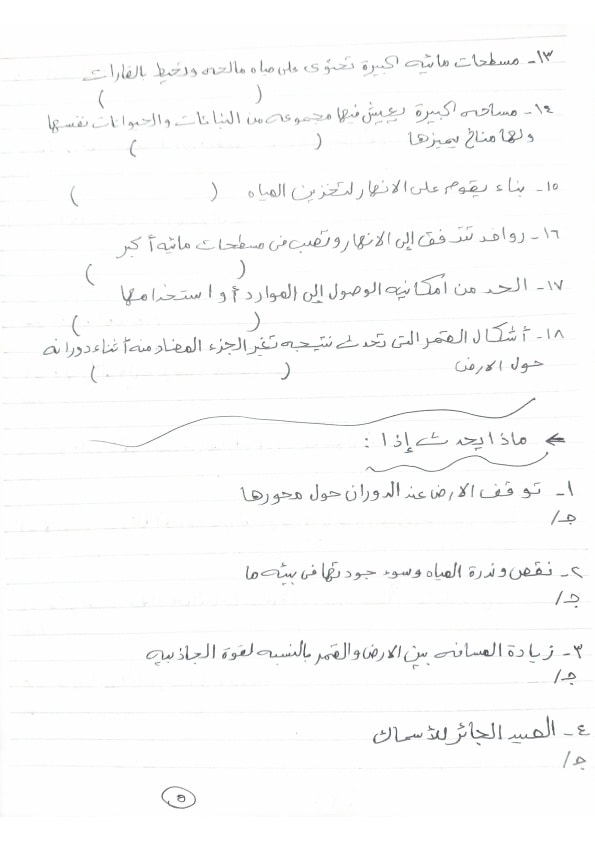 ١٣- مسطحات مائيه كبيرة تحتوى على مياه مالحه وتحيط بالقارات
( )
١٤- مساحه كبيرة يعيش فيها مجموعه من النباتات والحيوانات نفسها
ولها مناخ يميزها ( )
١٥- بناء يقوم على الانهار لتخزين المياه ( )
١٦- روافد تتدفق إلى الانهار وتصب فى مسطحات مائيه أكبر
( )
١٧- الحد من امكانيه الوصول إلى الموارد أو استخدامها
( )
١٨- أشكال القمر التى تحدث نتيجه تغير الجزء المضاء منه أثناء دورانه
حول الارض ( )
← ماذا يحدث إذا :
١- توقف الارض عند الدوران حول محورها
جـ/
٢- نقص وندرة المياه وسوء جودتها فى بيئه ما
جـ/
٣- زيادة المسافه بين الارض والقمر بالنسبه لقوة الجاذبيه
جـ/
٤- الصيد الجائر للأسماك
جـ/
٥